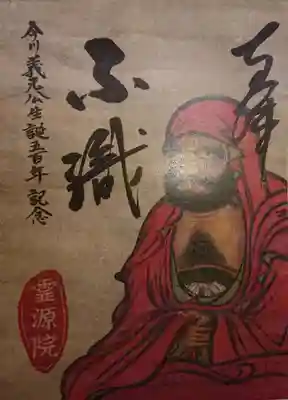 不識
今川義元公生誕五百年 記念
霊源院